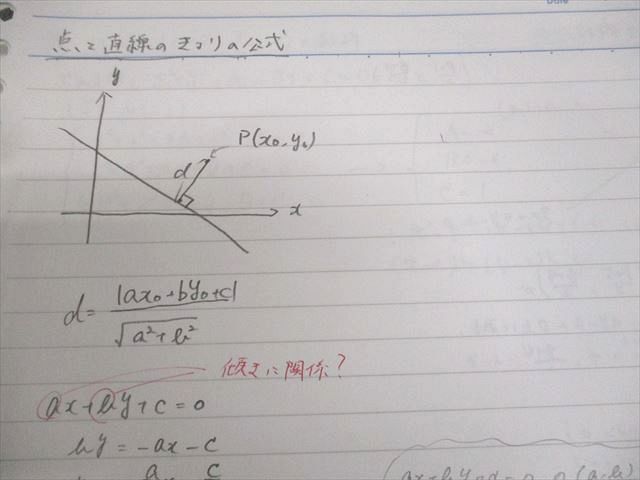 点と直線のきょりの公式
y
P(x₀, y₀)
d
x
d = |ax₀+by₀+c| / √(a²+b²)
傾きに関係?
ax+by+c=0
by=-ax-c